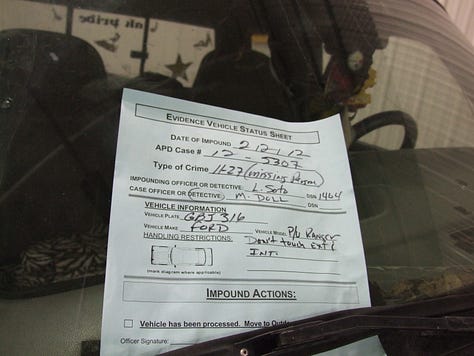 nk pride
EVIDENCE VEHICLE STATUS SHEET
DATE OF IMPOUND 2/21/12
APD Case # 12-5307
Type of Crime 1627 (missing Person)
IMPOUNDING OFFICER OR DETECTIVE L. Soto DSN 1404
CASE OFFICER OR DETECTIVE M. DOLL DSN
VEHICLE INFORMATION
VEHICLE PLATE GBJ 316
VEHICLE MAKE FORD VEHICLE MODEL P/U RANGER
HANDLING RESTRICTIONS: Don't touch Ext &
INT.
(mark diagram where applicable)
IMPOUND ACTIONS:
Vehicle has been processed. Move to
Officer Signature: